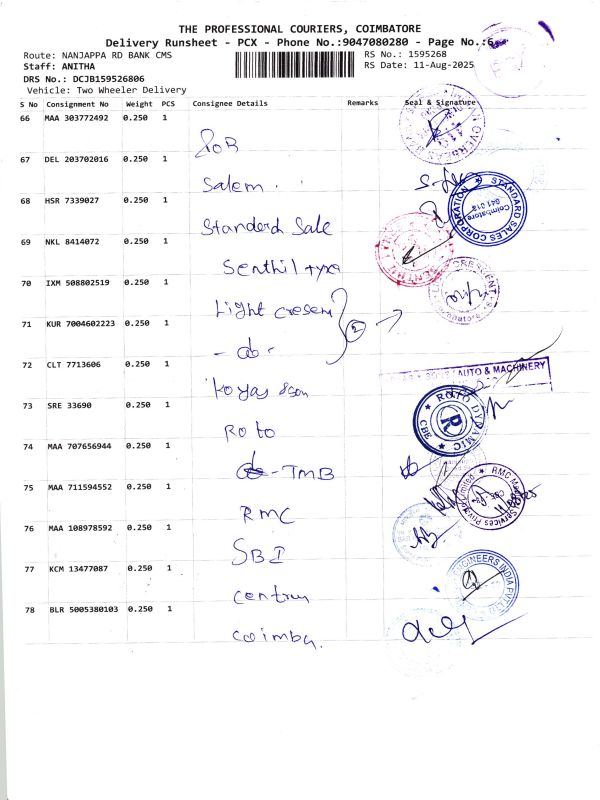 THE PROFESSIONAL COURIERS, COIMBATORE
Delivery Runsheet - PCX - Phone No.:9047080280 - Page No.:6
Route: NANJAPPA RD BANK CMS
RS No.: 1595268
Staff: ANITHA
RS Date: 11-Aug-2025
DRS No.: DCJB159526806
Vehicle: Two Wheeler Delivery
S No Consignment No Weight PCS Consignee Details Remarks Seal & Signature
66 MAA 303772492 0.250 1
IOB
67 DEL 203702016 0.250 1
Salem
68 HSR 7339027 0.250 1
Standerd Sale
STANDARD SALES CORPORATION
Coimbatore
641 018
69 NKL 8414072 0.250 1
Senthil tyre
70 IXM 508802519 0.250 1
Light cresem
CRESCENT
71 KUR 7004602223 0.250 1
2
- do -
72 CLT 7713606 0.250 1
AUTO & MACHINERY
Koyas &son
73 SRE 33690 0.250 1
ROTO DYNAMIC
CBE
R
Roto
74 MAA 707656944 0.250 1
- TMB
75 MAA 711594552 0.250 1
RMC
76 MAA 108978592 0.250 1
SBI
77 KCM 13477087 0.250 1
ENGINEERS INDIA PVT LTD
centrum
78 BLR 5005380103 0.250 1
Coimba.